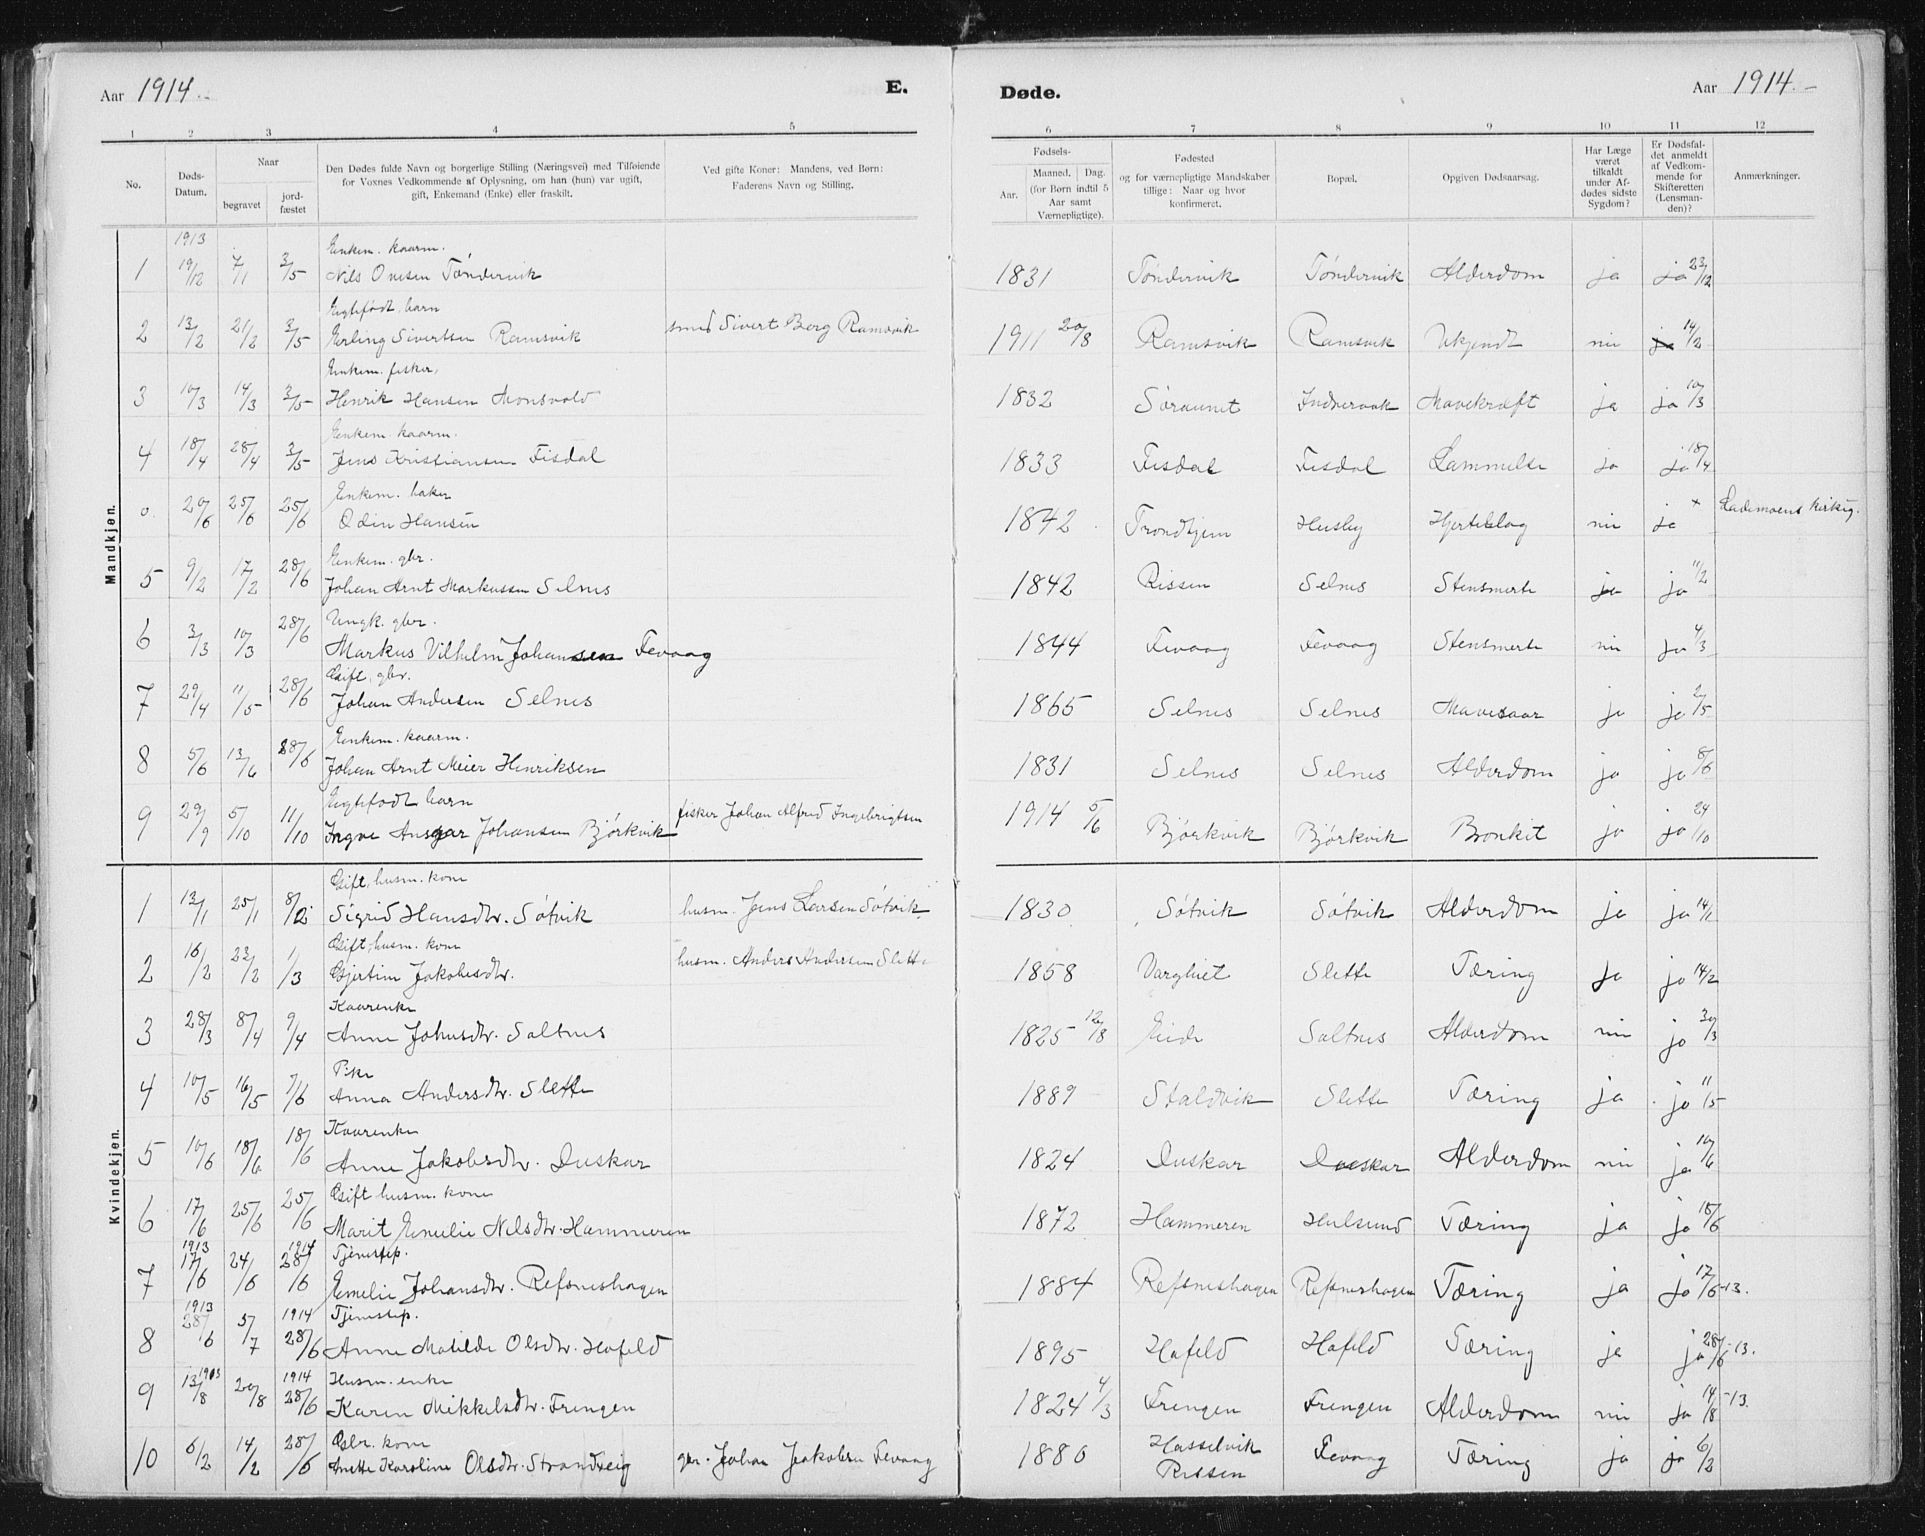 Aar 1914.
E.
Døde.
Aar 1914.
1 2 3 4 5 6 7 8 9 10 11 12
No.
Døds-Datum.
Naar
begravet
jord-fæstet
Den Dødes fulde Navn og borgerlige Stilling (Næringsvei) med Tilføiende
for Voxnes Vedkommende af Oplysning, om han (hun) var ugift,
gift, Enkemand (Enke) eller fraskilt.
Ved gifte Koner: Mandens, ved Børn:
Faderens Navn og Stilling.
Fødsels-
Aar.
Maaned. Dag.
(for Børn indtil 5
Aar samt
Værnepligtige).
Fødested
og for værnepligtige Mandskaber
tillige: Naar og hvor
konfirmeret.
Bopæl.
Opgiven Dødsaarsag.
Har Læge
været
tilkaldt
under Af-
dødes sidste
Sygdom?
Er Dødsfal-
det anmeldt
af Vedkom-
mende for
Skifteretten
(Lensman-
den)?
Anmærkninger.
Mandkjøn.
1913 Enkem. kaarm.
1 19/12 7/1 3/5 Nils Onesen Tøndervik 1831 Tøndervik Tøndervik Alderdom ja ja 23/12
Egtefødt barn
2 13/2 21/2 3/5 Erling Sivertsen Ramsvik smed Sivert Berg Ramsvik 1911 20/8 Ramsvik Ramsvik Ukjendt nei ja 14/2
Enkem. fisker,
3 10/3 14/3 3/5 Henrik Hansen Monsvold 1832 Søraunet Indrervik Mavekræft ja ja 10/3
Enkem. kaarm.
4 18/4 28/4 3/5 Jens Kristiansen Fisdal 1833 Fisdal Fisdal Lammelse ja ja 18/4
Enkem. baker
0. 20/6 25/6 25/6 Odin Hansen 1842 Trondhjem Husby Hjerteslag nei ja x Lademoens kirkeg.
Enkem. gbr.
5 9/2 17/2 28/6 Johan Arnt Markussen Selnes 1842 Rissen Selnes Stensmerte ja ja 11/2
Ungk. gbr.
6 3/3 10/3 28/6 Markus Vilhelm Johansen Fevaag 1844 Fevaag Fevaag Stensmerte nei ja 4/3
Gift, gbr.
7 29/4 11/5 28/6 Johan Andersen Selnes 1865 Selnes Selnes Mavesaar ja ja 2/5
Enkem. kaarm.
8 5/6 13/6 28/6 Johan Arnt Meier Henriksen 1831 Selnes Selnes Alderdom ja ja 8/6
Egtefødt barn
9 29/9 5/10 11/10 Ingve Ansgar Johansen Bjørkvik fisker Johan Alfred Ingebrigtsen 1914 5/6 Bjørkvik Bjørkvik Bronkit ja ja 24/10
Kvindekjøn.
Gift, husm. kone
1 13/1 25/1 8/2 Sigrid Hansdtr. Søtvik husm. Jens Larsen Søtvik 1830 Søtvik Søtvik Alderdom ja ja 14/1
Gift, husm. kone
2 16/2 22/2 1/3 Gjertine Jakobsdtr. husm. Anders Andersen Slette 1858 Varghiet Slette Tæring ja ja 14/2
Kaarenke
3 28/3 8/4 9/4 Anne Johnsdtr. Saltnes 1825 12/8 Eide Saltnes Alderdom nei ja 30/3
Pike
4 10/5 16/5 7/6 Anna Andersdtr. Slette 1889 Staldvik Slette Tæring ja ja 11/5
Kaarenke
5 10/6 18/6 18/6 Anne Jakobsdtr. Duskar 1824 Duskar Duskar Alderdom nei ja 10/6
Gift husm. kone
6 17/6 25/6 25/6 Marit Emelie Nilsdtr. Hammeren 1872 Hammeren Hulsund Tæring ja ja 18/6
1913 1914 Tjenestep.
7 17/6 24/6 28/6 Emelie Johansdtr. Refsneshagen 1884 Refsneshagen Refsneshagen Tæring ja ja 17/6 -13.
1913 1914 Tjenestep.
8 28/6 5/7 28/6 Anne Matilde Olsdtr. Hofeld 1895 Hofeld Hofeld Tæring ja ja 28/6 -13.
1913 1914 Husm. enke
9 13/8 20/8 28/6 Karen Mikkelsdtr. Frengen 1824 4/3 Frengen Frengen Alderdom nei ja 14/8 -13.
Gbr. kone
10 6/2 14/2 28/6 Anette Karoline Olsdtr. Strandveig gbr. Johan Jakobsen Fevaag 1880 Hasselvik Rissen Fevaag Tæring ja ja 6/2